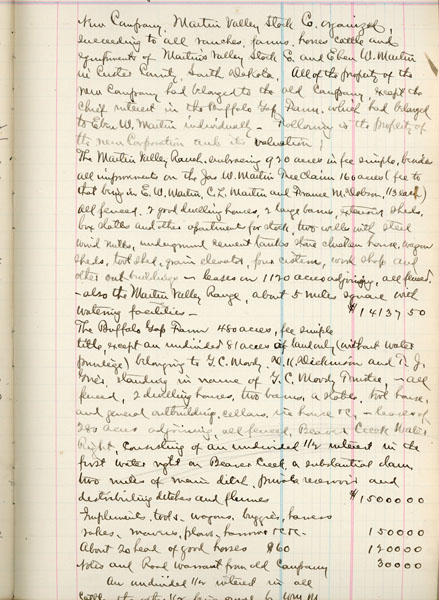 New Company, Martin Valley Stock Co. organized,
succeeding to all ranches, farms, horses cattle and
equipments of Martin Valley Stock Co. and Eben W. Martin
in Custer County, South Dakota. All of the property of the
new Company had belonged to the old Company, except the
chief interest in the Buffalo Gap Farm, which had belonged
to Eben W. Martin individually - Following is the property of
the new Corporation and its valuation;
The Martin Valley Ranch, embracing 920 acres in fee simple, besides
all improvements on the Jas W. Martin Tree Claim 160 acres (fee to
that being in E. W. Martin, C. L. Martin and M. Dobson, 1/3 each)
all fenced. 2 good dwelling houses, 2 large barns, extensive sheds,
box stalls and other apartments for stock, two wells with steel
wind mills, underground cement tanks stone chicken house, wagon
sheds, tool shed, grain elevator, four cisterns, work shop and
other out buildings - leases on 1120 acres adjoining, all fenced
- also the Martin Valley Range, about 5 miles square with
watering facilities - $14137 50
The Buffalo Gap Farm 480 acres, fee simple
title, except an undivided 81 acres of land only (without water
privilege) belonging to G. C. Moody, Dickinson and R. J.
standing in name of G. C. Moody Trustee, - all
fenced, 2 dwelling houses, two barns, a stable, tool house,
and general outbuilding, cellars, ice house &c. - leases of
240 acres adjoining, all fenced, Beaver Creek Water
Right, consisting of an undivided 1/2 interest in the
first water right on Beaver Creek, a substantial dam,
two miles of main ditch, private reservoir and
distributing ditches and flumes $15000 00
Implements, tools, wagons, buggies, harness
rakes, mowers, plows, harrows &c. &c. 1500 00
About 20 head of good horses $60 1200 00
Notes and Road warrant from old Company 300 00
An undivided 1/2 interest in all
cattle, the other 1/2 being owned by Wm M.